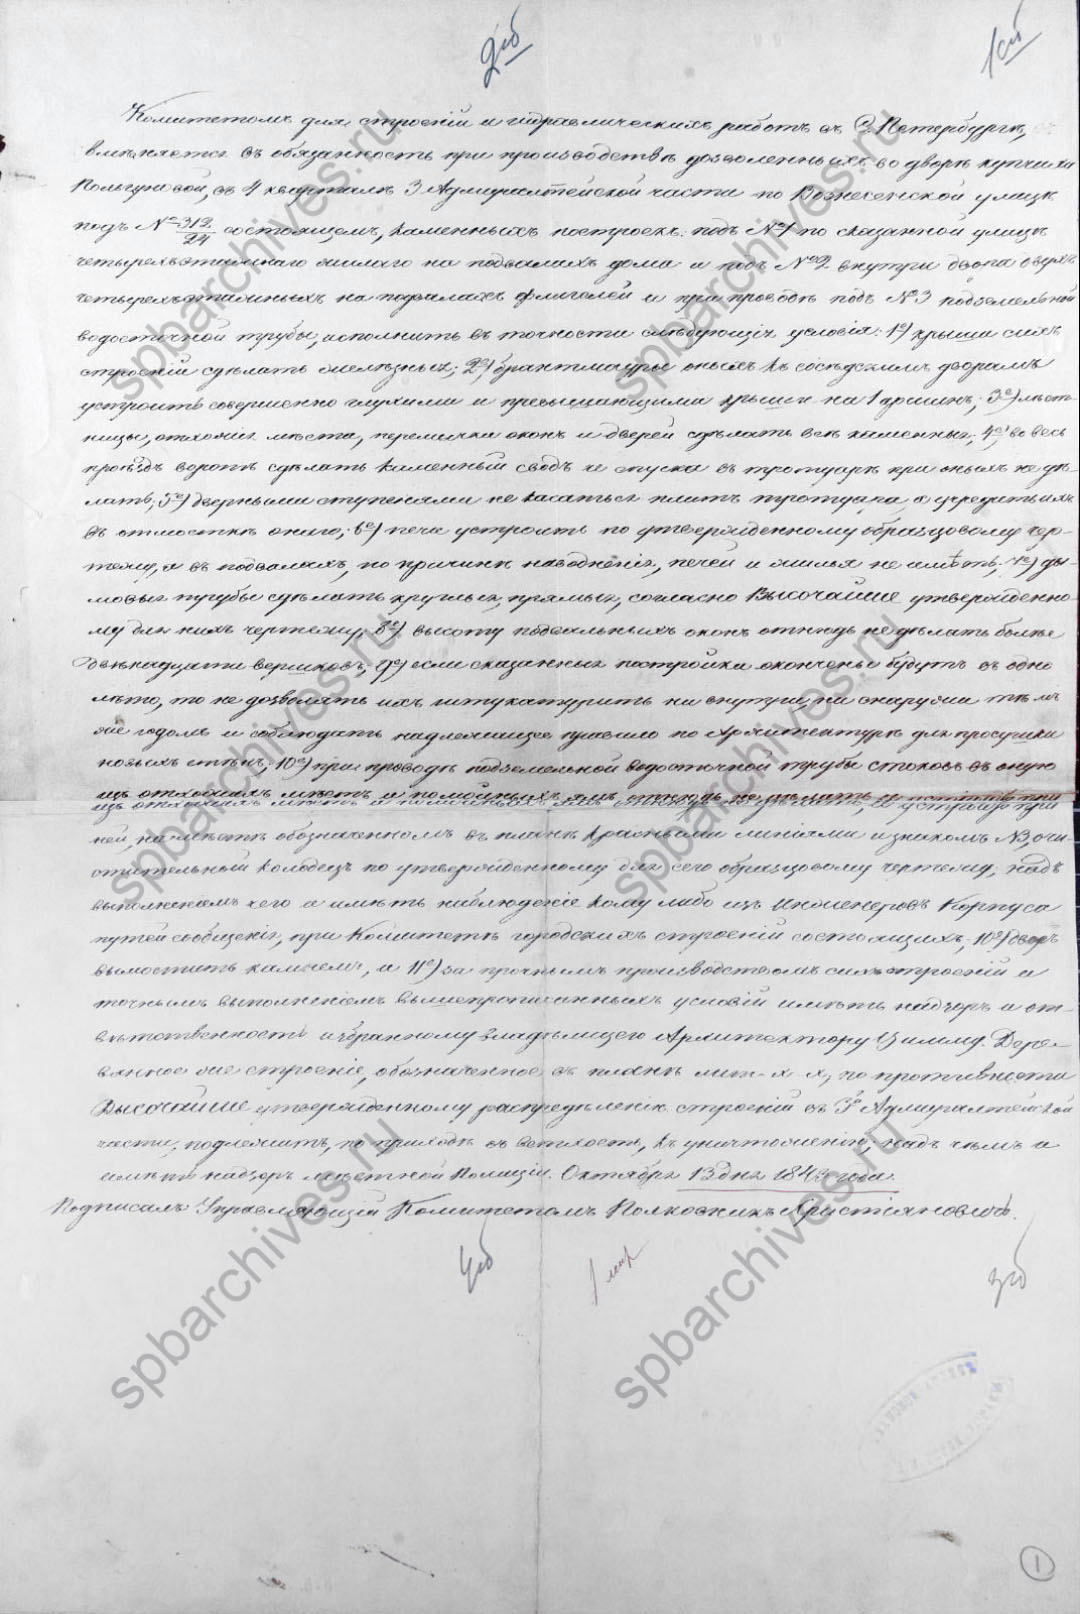 2 сб
1 сб
Комитетомъ для строеній и гидравлическихъ работъ въ С. Петербургѣ,
вмѣняется въ обязанность при производствѣ дозволенныхъ во дворѣ купчихи
въ 4 кварталѣ 3 Адмиралтейской части по Вознесенской улицѣ
подъ № 312/24 состоящемъ, каменныхъ построекъ: подъ №1 по сказанной улицѣ
четырехъэтажнаго жилаго на подвалахъ дома и подъ №2 внутри двора двухъ
четырехъэтажныхъ на подвалахъ флигелей и при проводѣ подъ №3 подземельной
водосточной трубы, исполнить въ точности слѣдующія условія: 1е) крыши сихъ
строеній сдѣлать желѣзныя; 2е) брантмауры оныхъ къ сосѣдскимъ дворамъ
устроить совершенно глухими и превышающими крыши на 1 аршинъ; 3е) лѣст-
ницы, отхожія мѣста, перемычки оконъ и дверей сдѣлать всѣ каменныя; 4е) во весь
проѣздъ воротъ сдѣлать каменный сводъ и спуска въ тротуарѣ при оныхъ не дѣ-
лать; 5е) дверными ступенями не касаться плитъ тротуара, а учредить ихъ
въ отмосткѣ онаго; 6е) печи устроить по утвержденному образцовому чер-
тежу, а въ подвалахъ, по причинѣ наводненія, печей и жилья не имѣть; 7е) ды-
мовыя трубы сдѣлать круглыя, прямыя, согласно Высочайше утвержденно-
му для нихъ чертежу; 8е) высоту подвальныхъ оконъ отнюдь не дѣлать болѣе
двѣнадцати вершковъ; 9е) если сказанныя постройки окончены будутъ въ одно
лѣто, то не дозволять ихъ штукатурить ни внутри, ни снаружи тѣмъ
же годомъ и соблюдать надлежащее правило по Архитектурѣ для просушки
новыхъ стѣнъ; 10е) при проводѣ подземельной водосточной трубы стоковъ въ оную
изъ отхожихъ мѣстъ и помойныхъ ямъ отнюдь не дѣлать и
ней, на мѣстѣ обозначенномъ въ планѣ красными линіями и знакомъ №3, очи-
стительный колодезь по утвержденному для сего образцовому чертежу, надъ
выполненіемъ чего и имѣть наблюденіе кому либо изъ Инженеровъ Корпуса
путей сообщенія, при Комитетѣ городскихъ строеній состоящихъ; 10е) дворъ
вымостить камнемъ, и 11е) за прочнымъ производствомъ сихъ строеній и
точнымъ выполненіемъ вышепрописанныхъ условій имѣть надзоръ и от-
вѣтственность избранному владѣлицею Архитектору Цимм. Дере-
вянное же строеніе, обозначенное въ планѣ лит. х х, по противности
Высочайше утвержденному распредѣленію строеній въ 3й Адмиралтейской
части, подлежитъ, по приходѣ въ ветхость, къ уничтоженію; надъ чѣмъ и
имѣть надзоръ мѣстной Полиціи. Октября 13 дня 1843 года.
Подписалъ Управляющій Комитетомъ Полковникъ Христіановичъ.
4 сб
3 сб
1
spbarchives.ru
spbarchives.ru
spbarchives.ru
spbarchives.ru
spbarchives.ru
spbarchives.ru